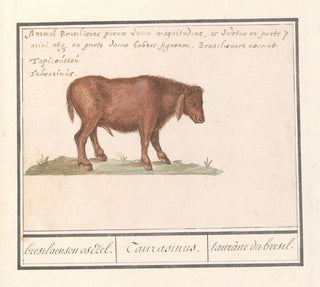 Animal Brasiliense parvae vaccae magnitudine, ac videtur ex parte
asini atq. ex parte vaccae habere figuram. Brasilienses vocant.
Tapiroussou
Taurasinus.
bresilaenschen os Ezel. Taurasinus. taurâne du bresil.